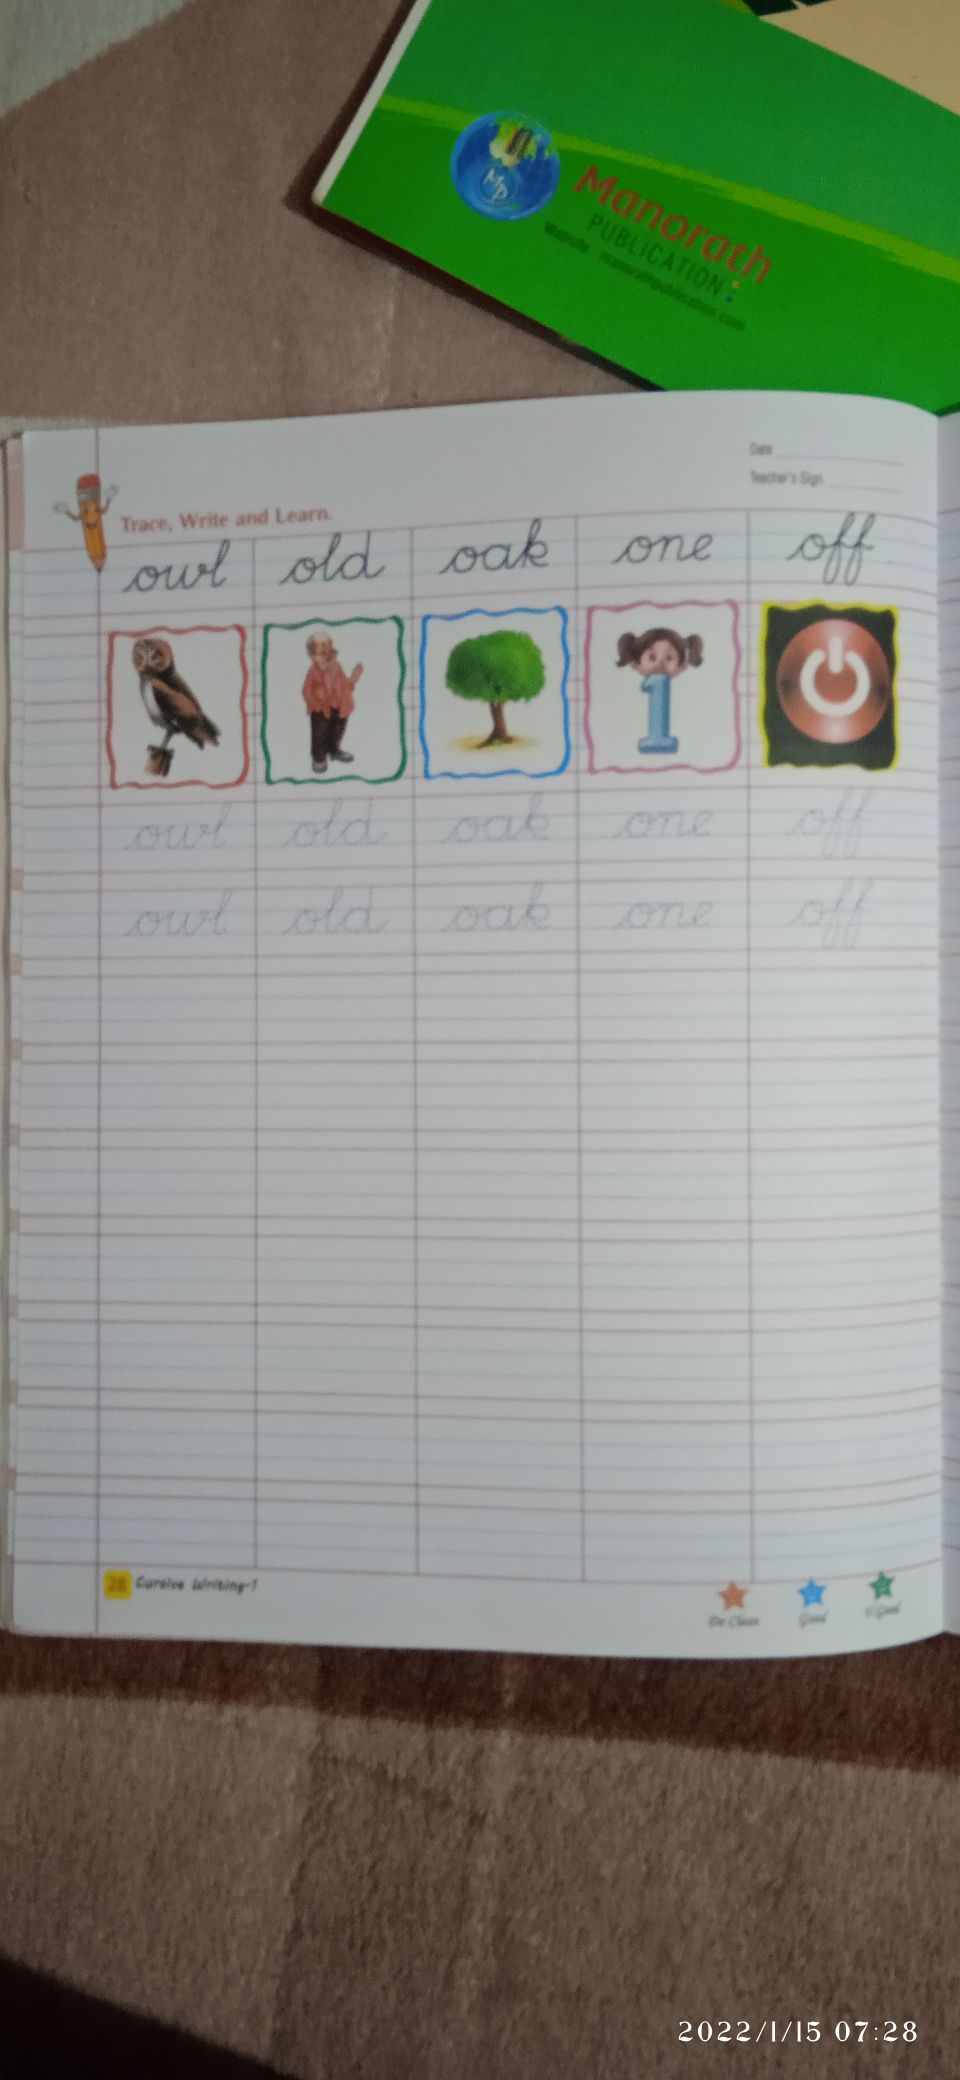 Manorath
PUBLICATION
Website : manorathpublication.com
Date
Teacher's Sign.
Trace, Write and Learn.
owl old oak one off
1
owl old oak one off
owl old oak one off
28 Cursive Writing-1
Good V.Good
2022/1/15 07:28